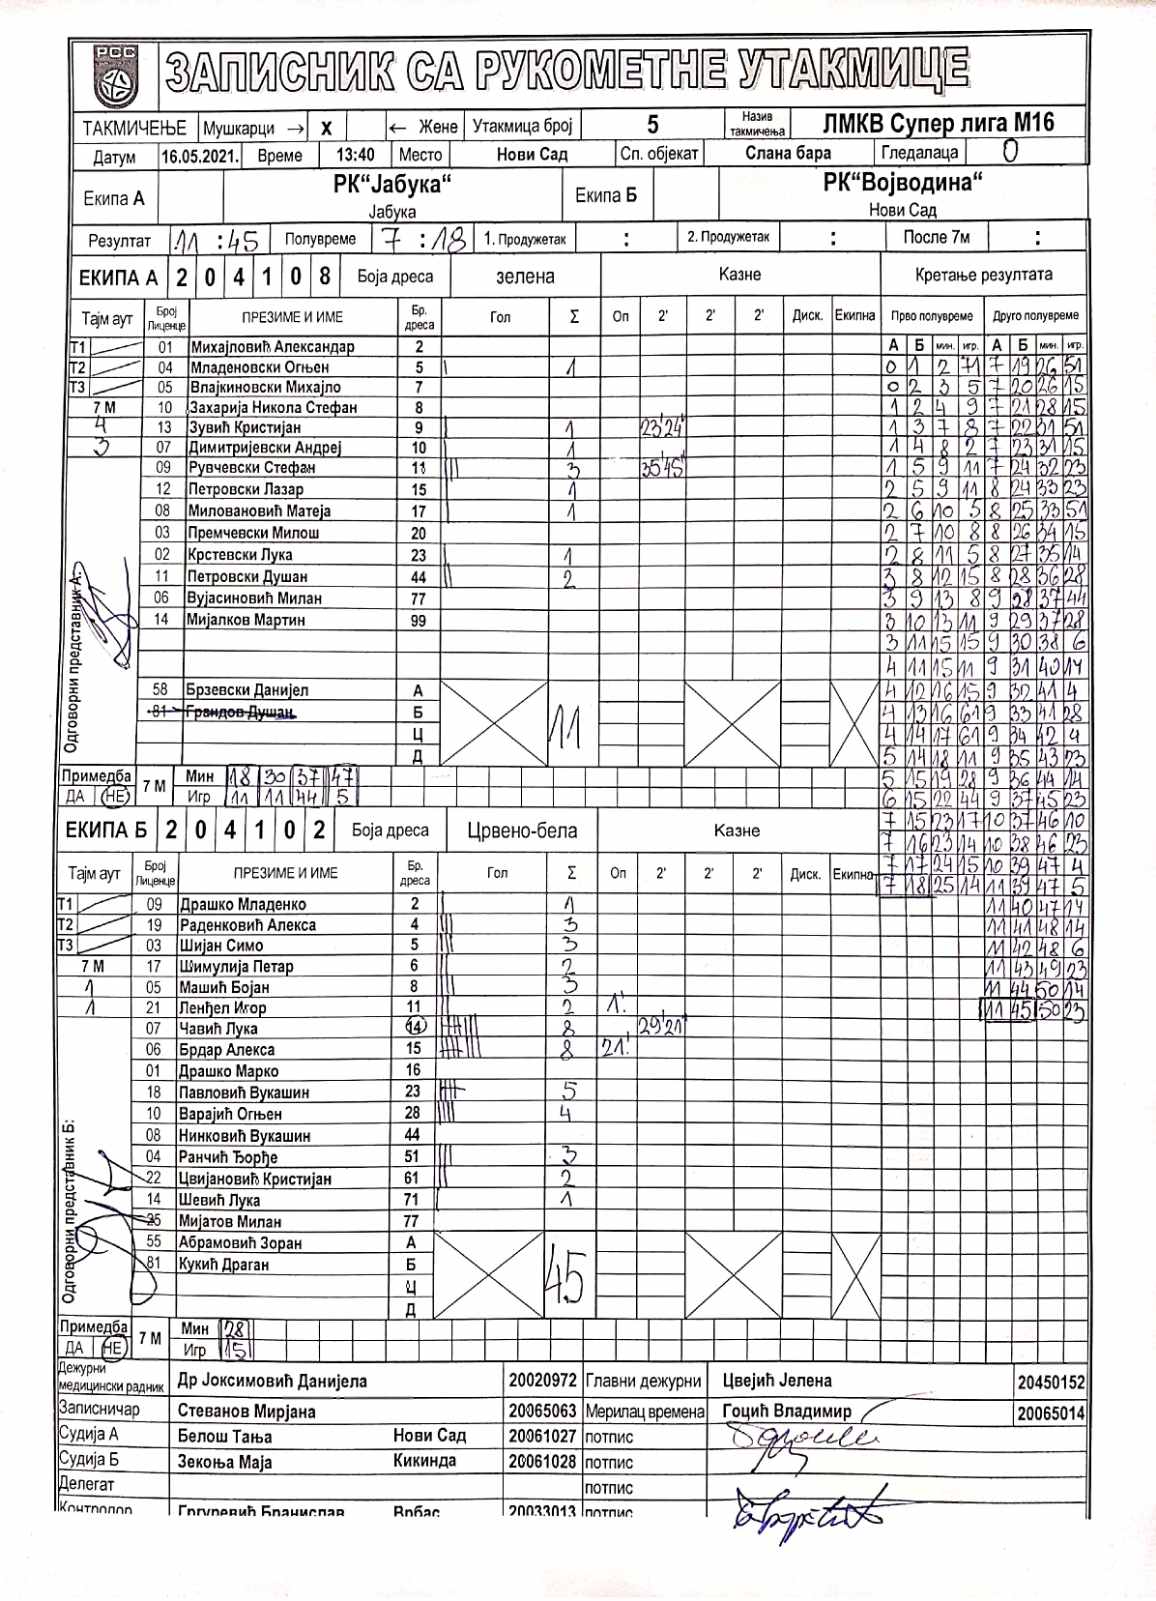 РСС
ЗАПИСНИК СА РУКОМЕТНЕ УТАКМИЦЕ
ТАКМИЧЕЊЕ Мушкарци → X ← Жене Утакмица број 5 Назив такмичења ЛМКВ Супер лига М16
Датум 16.05.2021. Време 13:40 Место Нови Сад Сп. објекат Слана бара Гледалаца 0
Екипа А РК“Јабука“ Јабука Екипа Б РК“Војводина“ Нови Сад
Резултат 11 : 45 Полувреме 7 : 18 1. Продужетак : 2. Продужетак : После 7м :
ЕКИПА А 2 0 4 1 0 8 Боја дреса зелена Казне Кретање резултата
Тајм аут Број Лиценце ПРЕЗИМЕ И ИМЕ Бр. дреса Гол Σ Оп 2' 2' 2' Диск. Екипна Прво полувреме Друго полувреме
Т1 01 Михајловић Александар 2 А Б мин. игр. А Б мин. игр.
Т2 04 Младеновски Огњен 5 1 0 1 2 71 7 19 26 51
Т3 05 Влајкиновски Михајло 7 0 2 3 5 7 20 26 15
7 М 10 Захарија Никола Стефан 8 1 2 4 9 7 21 28 15
4 13 Зувић Кристијан 9 1 23'24' 1 3 7 8 7 22 31 51
3 07 Димитријевски Андреј 10 1 1 4 8 2 7 23 31 15
09 Рувчевски Стефан 11 3 35'45' 1 5 9 11 7 24 32 23
12 Петровски Лазар 15 1 2 5 9 11 8 24 33 23
08 Миловановић Матеја 17 1 2 6 10 5 8 25 33 51
03 Премчевски Милош 20 2 7 10 8 8 26 34 15
02 Крстевски Лука 23 1 2 8 11 5 8 27 35 14
11 Петровски Душан 44 2 3 8 12 15 8 28 36 28
06 Вујасиновић Милан 77 3 9 13 8 9 28 37 44
14 Мијалков Мартин 99 3 10 13 11 9 29 37 28
3 11 15 15 9 30 38 6
4 11 15 11 9 31 40 14
58 Брзевски Данијел А 4 12 16 15 9 32 41 4
81 Грандов Душан Б 11 4 13 16 61 9 33 41 28
Ц 4 14 17 61 9 34 42 4
Д 5 14 18 11 9 35 43 23
Одговорни представник А:
Примедба 7 М Мин 18 30 37 47 5 15 19 28 9 36 44 14
ДА НЕ Игр 11 11 44 5 6 15 22 44 9 37 45 23
ЕКИПА Б 2 0 4 1 0 2 Боја дреса Црвено-бела Казне 7 15 23 17 10 37 46 10
7 16 23 14 10 38 46 23
Тајм аут Број Лиценце ПРЕЗИМЕ И ИМЕ Бр. дреса Гол Σ Оп 2' 2' 2' Диск. Екипна 7 17 24 15 10 39 47 4
7 18 25 14 11 39 47 5
Т1 09 Драшко Младенко 2 1 11 40 47 14
Т2 19 Раденковић Алекса 4 3 11 41 48 14
Т3 03 Шијан Симо 5 3 11 42 48 6
7 М 17 Шимулија Петар 6 2 11 43 49 23
1 05 Машић Бојан 8 3 11 44 50 14
1 21 Ленђел Игор 11 2 1' 11 45 50 23
07 Чавић Лука 14 8 29'21'
06 Брдар Алекса 15 8 21'
01 Драшко Марко 16
18 Павловић Вукашин 23 5
10 Варајић Огњен 28 4
08 Нинковић Вукашин 44
04 Ранчић Ђорђе 51 3
22 Цвијановић Кристијан 61 2
14 Шевић Лука 71 1
25 Мијатов Милан 77
55 Абрамовић Зоран А
81 Кукић Драган Б 45
Ц
Д
Одговорни представник Б:
Примедба 7 М Мин 28
ДА НЕ Игр 15
Дежурни медицински радник Др Јоксимовић Данијела 20020972 Главни дежурни Цвејић Јелена 20450152
Записничар Стеванов Мирјана 20065063 Мерилац времена Гоцић Владимир 20065014
Судија А Белош Тања Нови Сад 20061027 потпис
Судија Б Зекоња Маја Кикинда 20061028 потпис
Делегат потпис
Контролор Гргуревић Бранислав Врбас 20033013 потпис